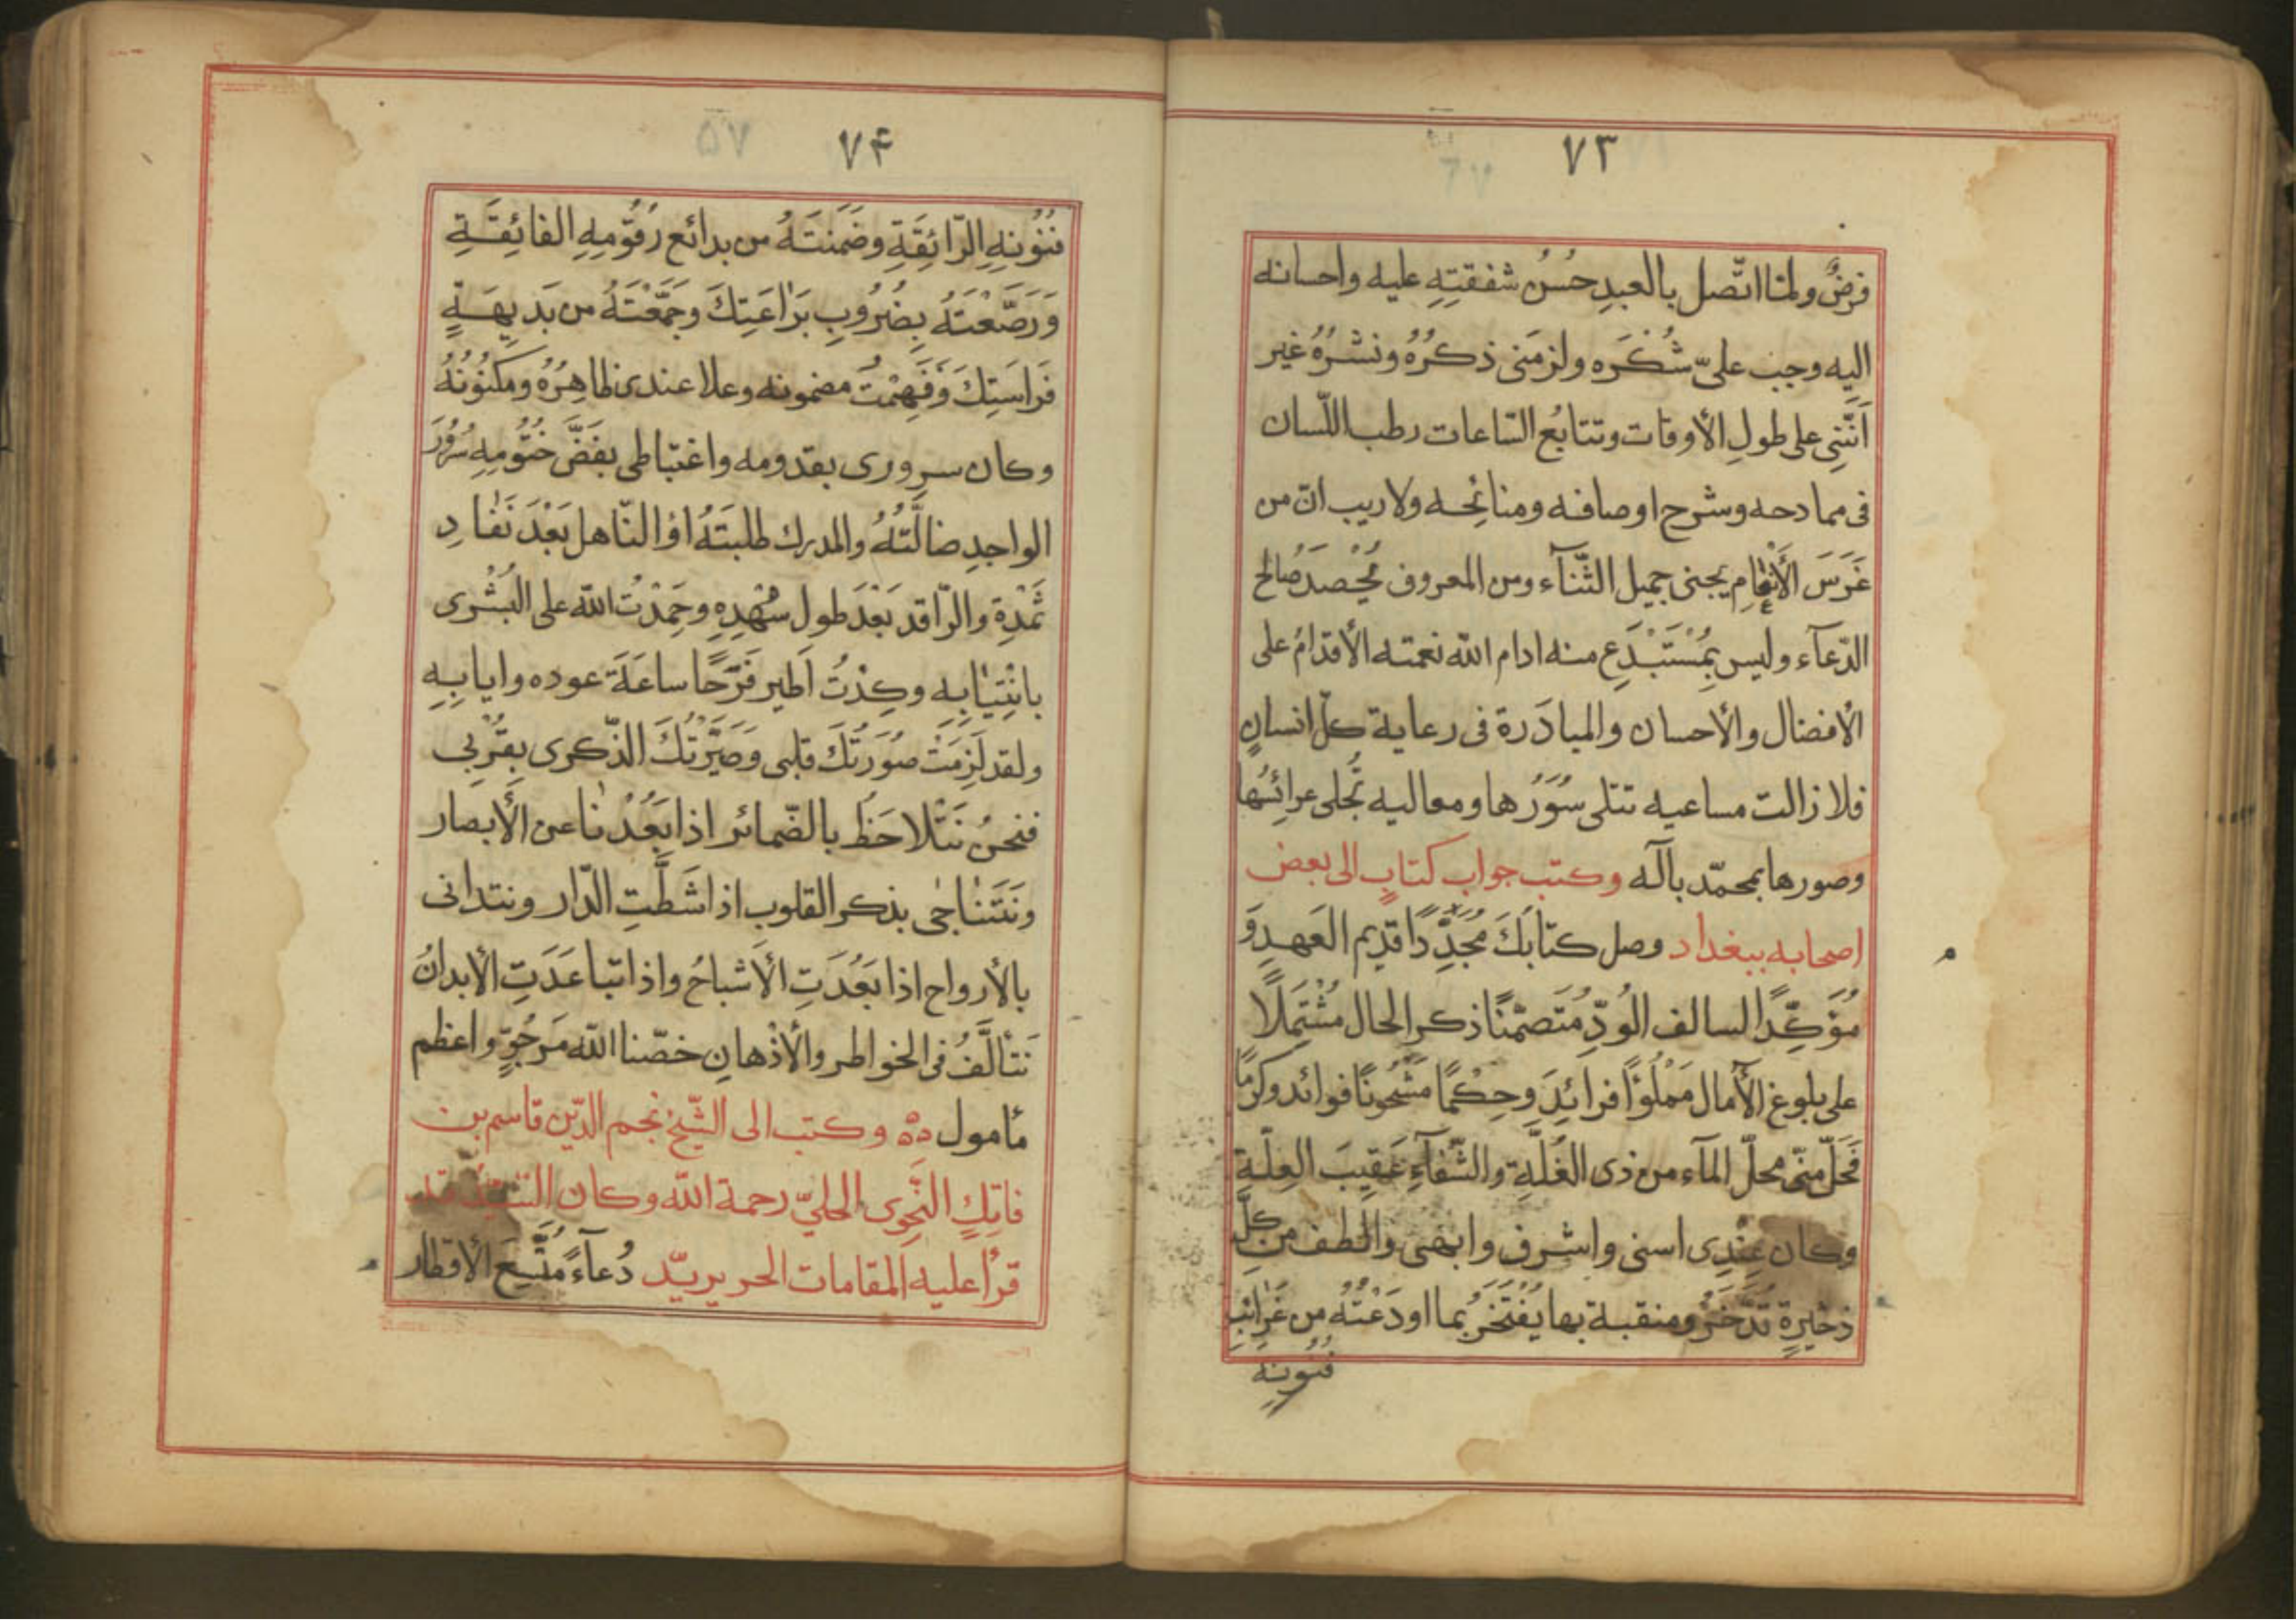 ٧٣
فرضٌ ولمّا اتّصل بالعبدِ حُسْنُ شفقتِهِ عليه واحسانه
اليه وجب علىّ شُكْرَه ولزمَنى ذكرُهُ ونشرُهُ غير
اَنَّنِى على طولِ الأوقات وتتابُع السّاعات رطب اللّسان
فى ممادحه وشرح اوصافه ومنائحه ولا ريب انّ من
غَرَسَ الأنعَامِ يجنى جميل الثّنآء ومن المعروف يُحْصَد صَالح
الدّعآء وليس بِمُسْتَبْدَعٍ منه ادام الله نعمته الأقدامُ على
الأفضال والأحسان والمبادَرة فى رعاية كلّ انسانٍ
فلا زالت مساعيه تتلى سُوَرُها ومعاليه تُجلى عرائسُها
وصورها بمحمّد بآله وكتب جواب كتابٍ الى بعض
اصحابه ببغداد وصل كتابَكَ مُجَدِّدًا قديم العَهدِ وَ
مُؤَكِّدًا لسالف الوُدِّ مُتَضمّنًا ذكر الحال مُشْتَمِلًا
على بلوغ الأمال مَمْلُوًّا فرائِدَ وحِكْمًا مَشْحُونًا فوائد وكرَمًا
فَحَلّ منّى محلّ المآء من ذى الغُلَّةِ والشّفآءِ عَقِيبَ العِلّةِ
وكان عِنْدِى اسنى واشرف وابهَى والطف من كلِّ
ذخيرةٍ تُدَّخَرُ ومنقبة بها يُفْتَخَرُ بما اودَعْتَهُ من غَرَائبِ
فُنُونِهِ
٧۴
فنُونِهِ الرّائِقَةِ وضَمَّنتَهُ من بدائع رُقُومِهِ الفائِقَةِ
وَرَصَّعْتَهُ بِضُرُوبِ بَرَاعَتِكَ وجَمَّعْتَهُ من بَديهَةِ
فَرَاسَتِكَ وَفَهِمْتُ مضمونه وعلا عندى ظاهِرُهُ ومكنُونُهُ
وكان سرورى بقدومه واغتباطى بفَضِّ خُتُومِهِ سُرُورَ
الواجدِ ضالَّتَهُ والمدرك طلبتَهُ او النّاهل بَعْدَ نَفَادِ
ثَمْدِهِ والرّاقد بَعْدَ طول سُهْدِهِ وحَمِدْتُ الله على البُشْرى
بانْتِيَابِهِ وكِدْتُ اَطير فَرَحًا ساعَةَ عوده وايابِهِ
ولقد لَزِمَتْ صُورَتُكَ قلبى وَصَيَّرَتْكَ الذّكرى بِقُرْبِى
فنحنُ نَتَلاحَظُ بالضّمائر اذا بَعُدْنَا عن الأَبصار
ونَتَنَاجَى بذكر القلوب اذا شَطَّتِ الدّار ونتدانى
بالأرواح اذا بَعُدَتِ الأشباحُ واذا تباعَدَتِ الأبدانُ
نَتَأَلَّفُ فى الخواطر والأذْهانِ خصّنا الله مَرجُوٍّ واعظم
مأمول وكتب الى الشّيخ نجم الدّين قاسم بن
فاتِكٍ النّحوى الحلىّ رحمة الله وكان السّيّد قد
قرأ عليه المقامات الحريريّة دُعآءً الأقطار